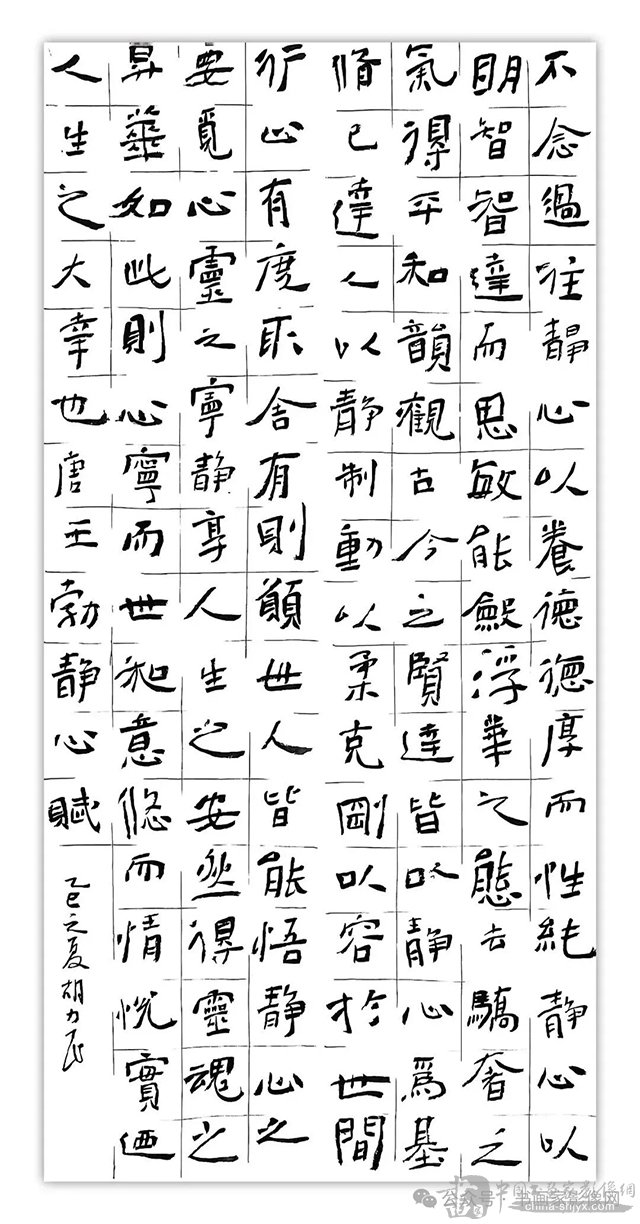 不念過往靜心以養德德厚而性純靜心以
明智智達而思敏能斂浮華之態去驕奢之
氣得平和韻觀古今之賢達皆以靜心爲基
脩己達人以靜制動以柔克剛以容於世間
行止有度取舍有則願世人皆能悟靜心之
要覓心靈之寧靜享人生之安然得靈魂之
昇華如此則心寧而世和意悠而情悅實迺
人生之大幸也唐王勃靜心賦
乙巳之夏胡力民
公众号·书画家影像网
china-shjyx.com